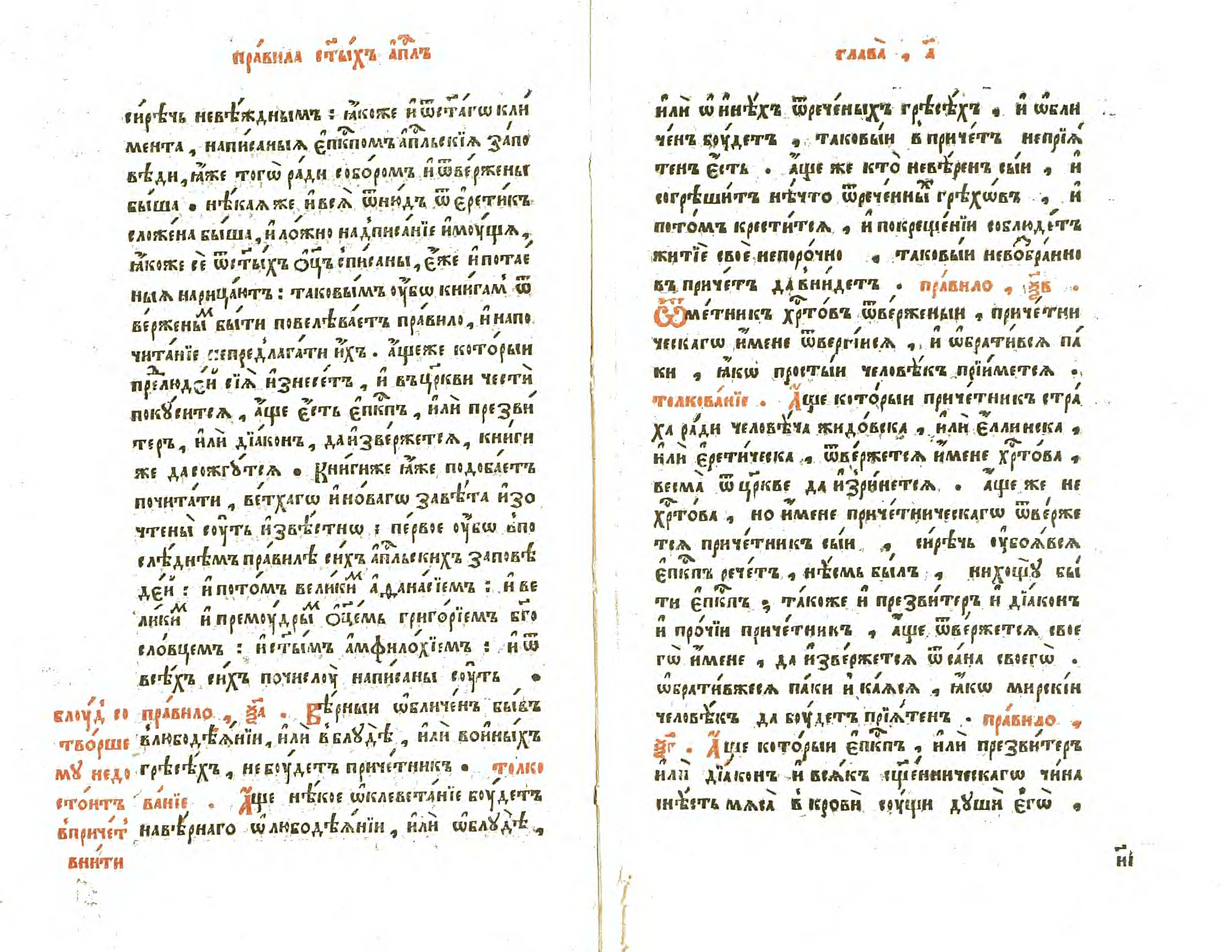 пра́вила ст҃ы́хъ а҆пⷭ҇лъ
си́рѣчь невѣ́жднымъ : ꙗ҆́коже и҆ ѿ ст҃а́гѡ кли
мента , напи́саныѧ є҆пкⷭ҇помъ а҆пⷭ҇льскїѧ за́по
вѣди , ꙗ҆́же тогѡ̀ ра́ди собо́ромъ и҆ ѿве́ржены
бы́ша . нѣ́каѧ же и҆ всѧ̀ ѿню́дъ ѿ є҆рети́къ
сло́жена бы́ша , и҆ ло́жно надписа́нїе и҆мꙋ́щѧ ,
ꙗ҆́коже сѐ ѿ ст҃ы́хъ ѻ҆ц҃ъ спи́саны , є҆́же и҆ потае
ны́ѧ нарица́ютъ : таковы́мъ оу҆́бѡ кни́гам ѿ
ве́ржены̑м бы́ти повелѣва́етъ пра́вило , и҆ на по
чита́нїе непредлага́ти и҆́хъ . а҆́ще же кото́рыи
пре́ людѐй сїѧ̀ и҆знесе́тъ , и҆ въ цр҃кви честѝ
покꙋ́ситсѧ , а҆́ще є҆́сть є҆пкⷭ҇пъ , и҆лѝ презви́
теръ , и҆лѝ дїа́конъ , да и҆зве́ржетсѧ , кни́ги
же да сожгꙋ́тсѧ . Кни́ги же ꙗ҆́же подоба́етъ
почита́ти , ве́тхагѡ и҆ но́вагѡ завѣ́та и҆зо
чтены̀ сꙋ́ть и҆звѣ́стнѡ : пе́рвое оу҆́бѡ в по
слѣ́днѣмъ пра́вилѣ си́хъ а҆пⷭ҇льскихъ за́повѣ
де́й : и҆ пото́мъ вели́ким а҆фана́сїемъ : и҆ ве
ли́ким и҆ премꙋ́дрым ѻ҆ц҃емъ григо́рїемъ бг҃о
сло́вцемъ : и҆ ст҃ы́мъ а҆мфило́хїемъ : и҆ ѿ
всѣ́хъ си́хъ по числꙋ̀ напи́саны сꙋ́ть .
пра́вило , ѯ҃а . Вѣ́рныи ѡ҆бличе́нъ бы́въ
в любодѣѧ́нїи , и҆лѝ в блꙋ́дѣ , и҆лѝ во и҆ны́хъ
грѣсѣ́хъ , не бꙋ́детъ приче́тникъ . толко
ва́нїе . А҆́ще нѣ́кое ѡ҆клевета́нїе бꙋ́детъ
на вѣ́рнаго ѡ҆ любодѣѧ́нїи , и҆лѝ ѡ҆ блꙋ́дѣ ,
блꙋ́д со
тво́рше
мꙋ̀ недо
сто́итъ
в при́чет
вни́ти
глава̀ , а҃
и҆лѝ ѡ҆ и҆нѣ́хъ ѿрече́ныхъ грѣсѣ́хъ , и҆ ѡ҆бли
че́нъ бꙋ́детъ , таковы́и в при́четъ неприѧ́
тенъ є҆́сть . а҆́ще же кто̀ невѣ́ренъ сы́и , и҆
согрѣши́тъ нѣ́что ѿрече́нных грѣхѡ́въ , и҆
пото́мъ крести́тсѧ , и҆ по креще́нїи соблюде́тъ
житїѐ своѐ непоро́чно , таковы́и невозбра́нно
въ при́четъ да вни́детъ . пра́вило , ѯ҃в .
Ѿме́тникъ хрⷭ҇то́въ ѿве́рженыи , приче́тни
ческагѡ и҆́мене ѿве́ргїисѧ , и҆ ѡ҆брати́всѧ па́
ки , ꙗ҆́кѡ просты́и человѣ́къ прїи́метсѧ .
толкова́нїе . А҆́ще кото́рыи приче́тникъ стра́
ха ра́ди человѣ́ча жидо́вска , и҆лѝ є҆́ллинска ,
и҆лѝ є҆рети́ческа , ѿве́ржетсѧ и҆́мене хрⷭ҇то́ва ,
весма̀ ѿ цр҃кве да и҆зри́нетсѧ . а҆́ще же не
хрⷭ҇то́ва , но и҆́мене приче́тническагѡ ѿве́рже
тсѧ приче́тникъ сы́и , си́рѣчь оу҆боѧ́всѧ
є҆пкⷭ҇пъ рече́тъ , нѣ́смь бы́лъ , ни хощꙋ̀ бы́
ти є҆пкⷭ҇пъ ; та́коже и҆ презви́теръ и҆ дїа́конъ
и҆ про́чїи приче́тникъ , а҆́ще ѿве́ржетсѧ свое
гѡ̀ и҆́мене , да и҆зве́ржетсѧ ѿ са́на своегѡ̀ .
ѡ҆брати́вжесѧ па́ки и҆ ка́ѧсѧ , ꙗ҆́кѡ мирскі́и
человѣ́къ да бꙋ́детъ прїѧ́тенъ . пра́вило ,
ѯ҃г . А҆́ще кото́рыи є҆пкⷭ҇пъ , и҆лѝ презви́теръ
и҆лѝ дїа́конъ и҆ всѧ́къ сщ҃е́нническагѡ чи́на
снѣ́сть мѧса̀ в кро́ви сꙋ́щи дꙋшѝ є҆гѡ̀ ,
н҃і